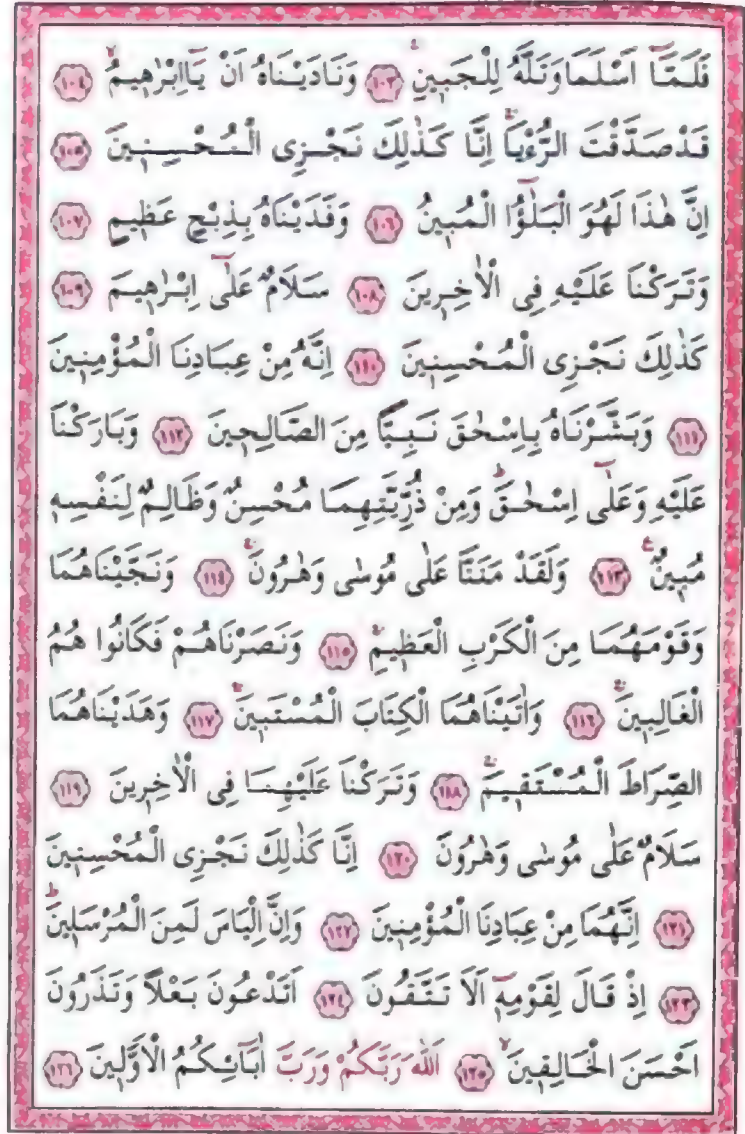 فَلَمَّٓا اَسْلَمَا وَتَلَّهُ لِلْجَب۪ينِۚ ﴿١٠٣﴾ وَنَادَيْنَاهُ اَنْ يَٓا اِبْرٰه۪يمُۙ ﴿١٠٤﴾
قَدْ صَدَّقْتَ الرُّءْيَاۚ اِنَّا كَذٰلِكَ نَجْزِى الْمُحْسِن۪ينَ ﴿١٠٥﴾
اِنَّ هٰذَا لَهُوَ الْبَلٰٓؤُا الْمُب۪ينُ ﴿١٠٦﴾ وَفَدَيْنَاهُ بِذِبْحٍ عَظ۪يمٍ ﴿١٠٧﴾
وَتَرَكْنَا عَلَيْهِ فِى الْاٰخِر۪ينَ ﴿١٠٨﴾ سَلَامٌ عَلٰٓى اِبْرٰه۪يمَ ﴿١٠٩﴾
كَذٰلِكَ نَجْزِى الْمُحْسِن۪ينَ ﴿١١٠﴾ اِنَّهُ مِنْ عِبَادِنَا الْمُؤْمِن۪ينَ
﴿١١١﴾ وَبَشَّرْنَاهُ بِاِسْحٰقَ نَبِيًّا مِنَ الصَّالِح۪ينَ ﴿١١٢﴾ وَبَارَكْنَا
عَلَيْهِ وَعَلٰٓى اِسْحٰقَۜ وَمِنْ ذُرِّيَّتِهِمَا مُحْسِنٌ وَظَالِمٌ لِنَفْسِه۪
مُب۪ينٌ۟ ﴿١١٣﴾ وَلَقَدْ مَنَنَّا عَلٰى مُوسٰى وَهٰرُونَۚ ﴿١١٤﴾ وَنَجَّيْنَاهُمَا
وَقَوْمَهُمَا مِنَ الْكَرْبِ الْعَظ۪يمِۚ ﴿١١٥﴾ وَنَصَرْنَاهُمْ فَكَانُوا هُمُ
الْغَالِب۪ينَۚ ﴿١١٦﴾ وَاٰتَيْنَاهُمَا الْكِتَابَ الْمُسْتَب۪ينَۚ ﴿١١٧﴾ وَهَدَيْنَاهُمَا
الصِّرَاطَ الْمُسْتَق۪يمَۚ ﴿١١٨﴾ وَتَرَكْنَا عَلَيْهِمَا فِى الْاٰخِر۪ينَ ﴿١١٩﴾
سَلَامٌ عَلٰى مُوسٰى وَهٰرُونَ ﴿١٢٠﴾ اِنَّا كَذٰلِكَ نَجْزِى الْمُحْسِن۪ينَ
﴿١٢١﴾ اِنَّهُمَا مِنْ عِبَادِنَا الْمُؤْمِن۪ينَ ﴿١٢٢﴾ وَاِنَّ اِلْيَاسَ لَمِنَ الْمُرْسَل۪ينَۜ
﴿١٢٣﴾ اِذْ قَالَ لِقَوْمِه۪ٓ اَلَا تَتَّقُونَ ﴿١٢٤﴾ اَتَدْعُونَ بَعْلًا وَتَذَرُونَ
اَحْسَنَ الْخَالِق۪ينَۙ ﴿١٢٥﴾ اَللّٰهَ رَبَّكُمْ وَرَبَّ اٰبَٓائِكُمُ الْاَوَّل۪ينَ ﴿١٢٦﴾